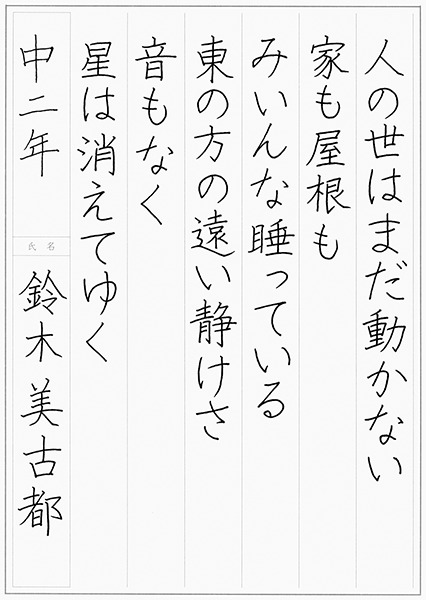 人の世はまだ動かない
家も屋根も
みいんな睡っている
東の方の遠い静けさ
音もなく
星は消えてゆく
中二年
氏名
鈴木美古都